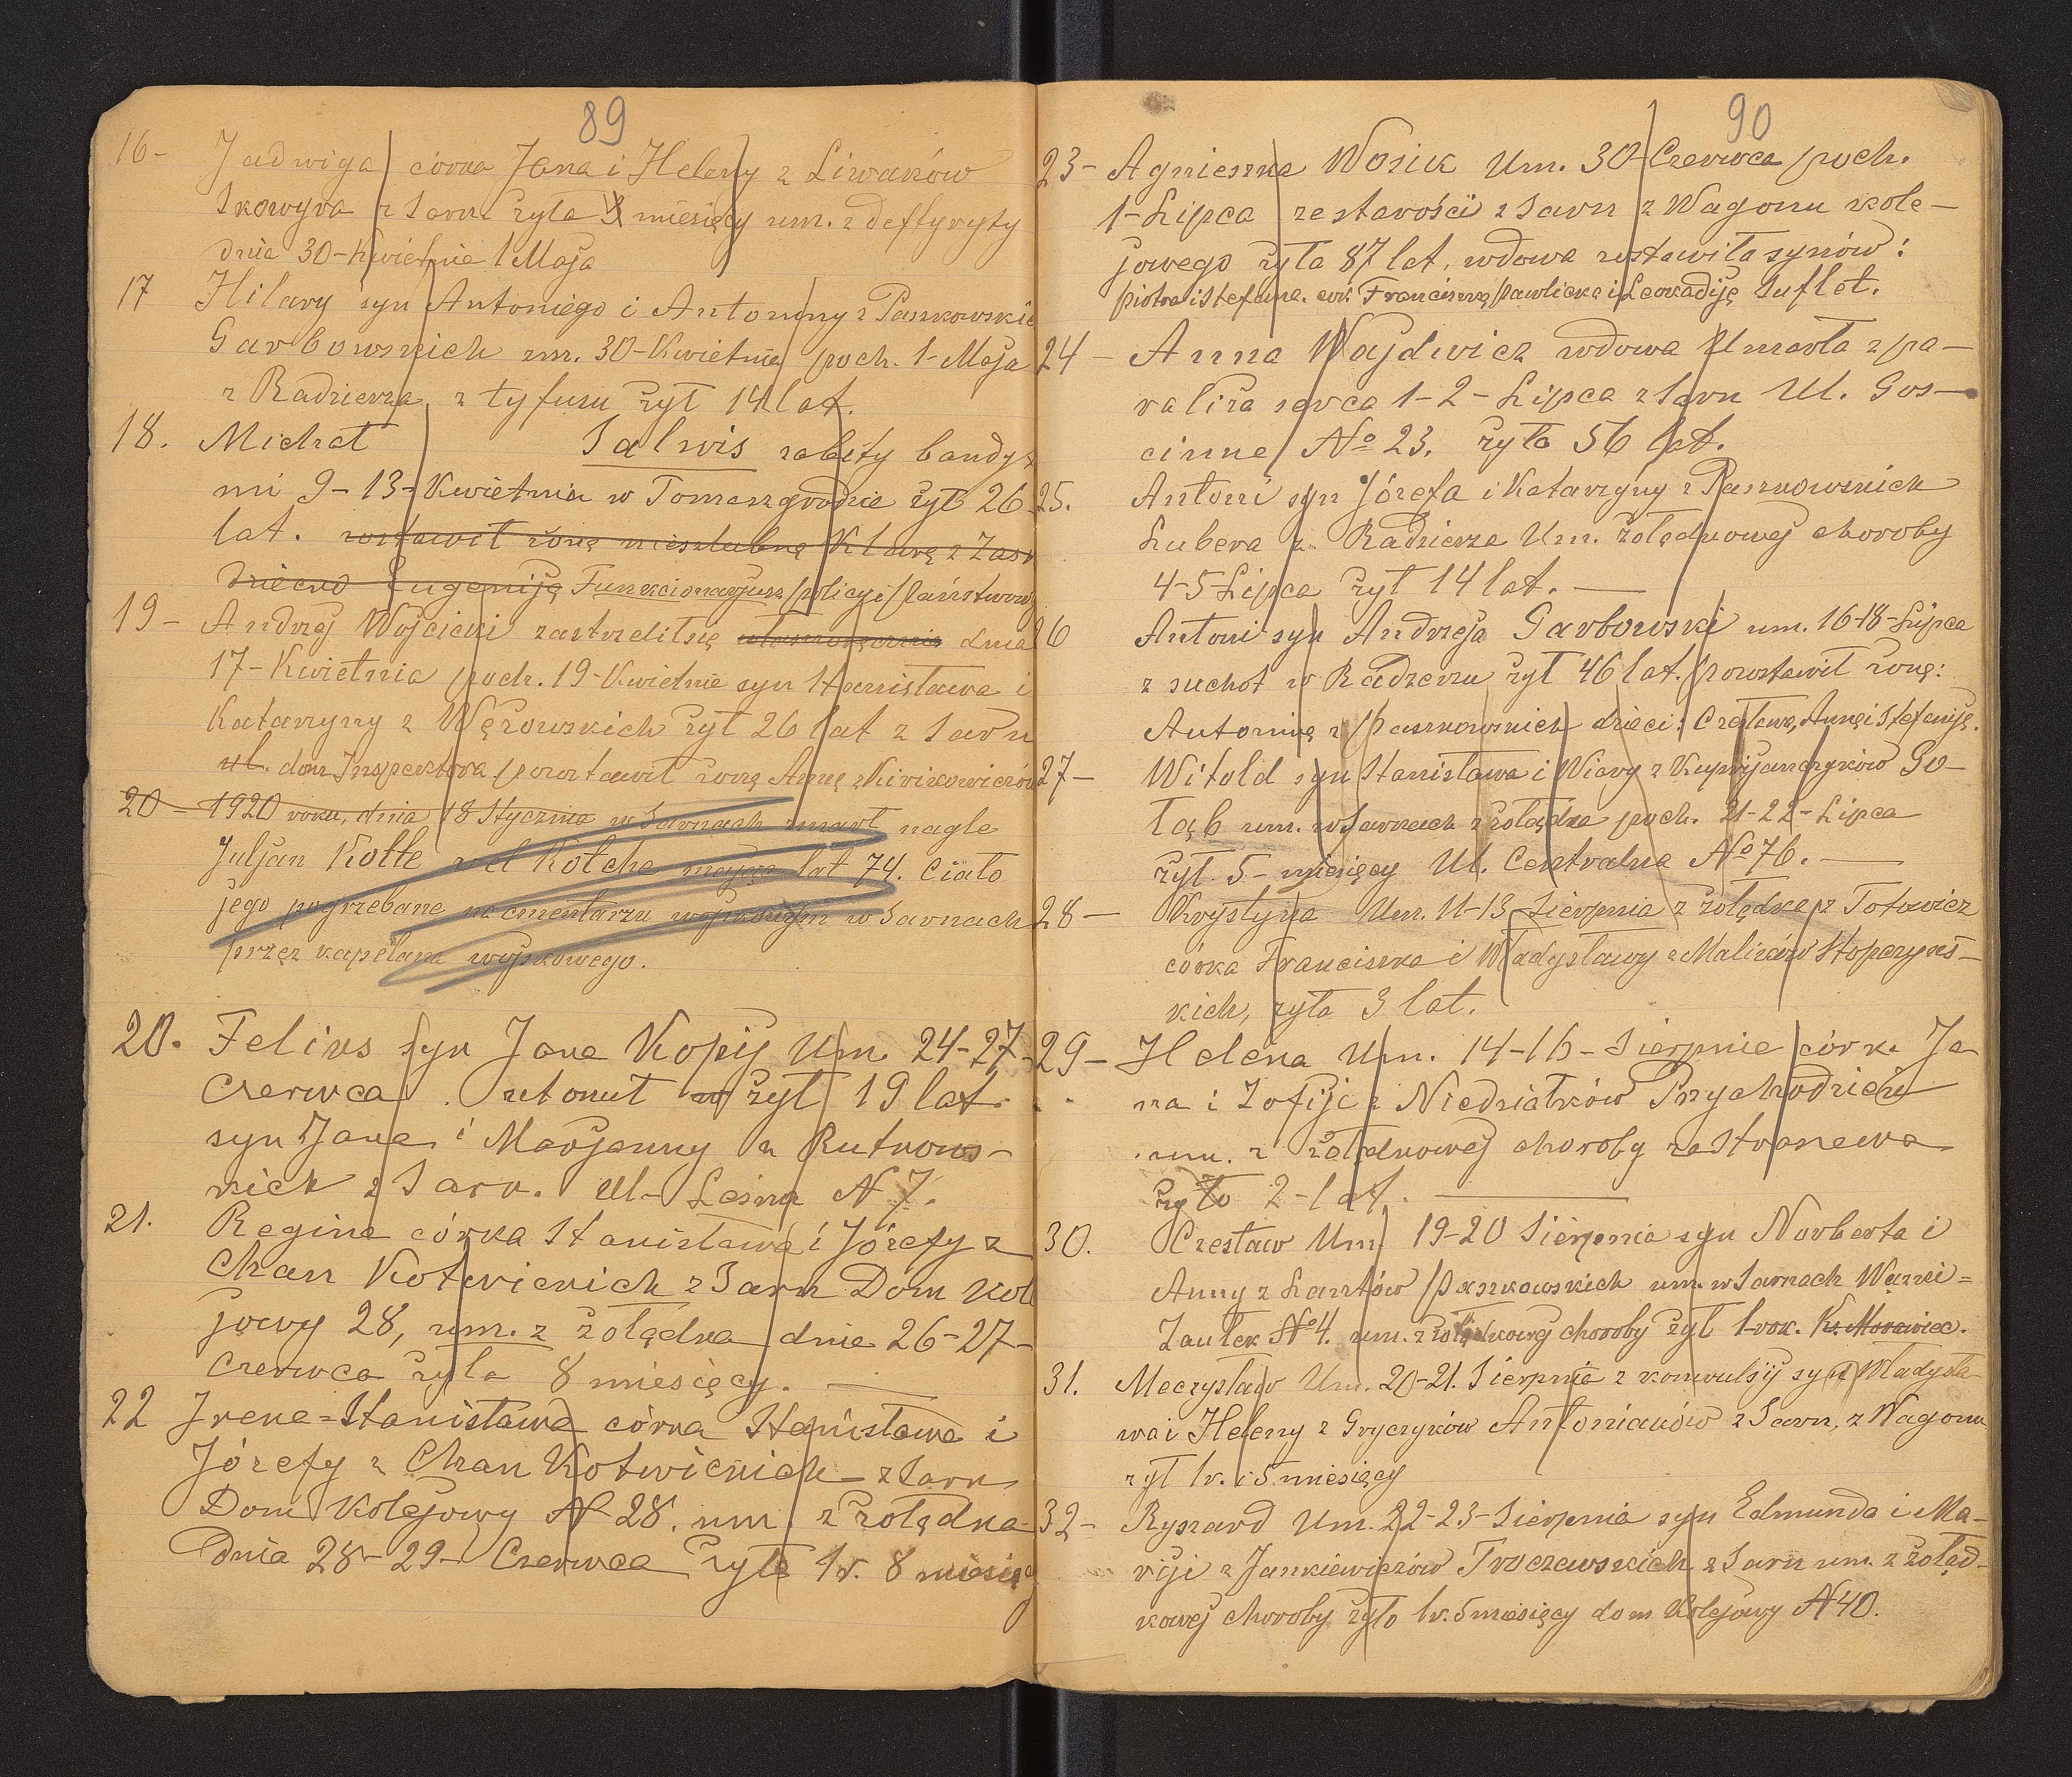 89
16- Jadwiga córka Jana i Heleny z Liwaków
Skowyra z Sarn żyła miesięcy um. z deftyryty
dnia 30-Kwietnia 1 Maja
17 Hilary syn Antoniego i Antoniny z Paszkowskich
Garbowskich um. 30-Kwietnia poch. 1-Maja
z Radzieża z tyfusu żył 14 lat.
18. Michał Salwis zabity bandyt
mi 9-13-Kwietnia w Tomaszgrodzie żył 26
lat. zostawił żonę nieszlubną Klarę z
dziecko Eugeniję Funkcionarjusz policyi państwowej
19- Andrzej Wojcicki zastrzelił się własnoręcznie dnia
17-Kwietnia poch. 19-Kwietnia syn Stanisława i
Katarzyny z Wężowskich żył 26 lat z Sarn
ul. dom Inspektora pozostawił żonę Annę z
20- 1920 roku, dnia 18 Stycznia w Sarnach zmarł nagle
Juljan Kolle vel Kolcha mając lat 74. Ciało
jego pogrzebane na cmentarzu wojskowym w Sarnach
przez kapelana wojskowego.
20. Felix syn Jana Kopij Um. 24-27-
Czerwca utonuł żył 19 lat.
syn Jana i Marjanny z Rutkows-
kich z Sarn. Ul- Leśna N 7.
21. Regina córka Stanisława i Józefy z
Chan Kotwickich z Sarn Dom kole
jowy 28, um. z żołądka dnia 26-27-
Czerwca żyła 8 miesięcy.
22 Irena=Stanisława córka Stanisława i
Józefy z Chan Kotwickich - z Sarn
Dom Kolejowy N 28. um. z żołądka-
Dnia 28-29- Czerwca żyła 1 r. 8 miesięcy
90
23- Agnieszka Wosiuk Um. 30-Czerwca poch.
1-Lipca ze starości z Sarn z Wagonu kole-
jowego żyła 87 lat, wdowa zostawiła synów:
Piotra i Stefana. cór. Franciszkę Pawlicką i Leokadiję Suflet.
24- Anna Wajdwicz wdowa Umarła z pa-
raliża serca 1-2-Lipca z Sarn Ul. Goś-
cinne No 23. żyła 56 lat.
25. Antoni syn Józefa i Katarzyny z Paszkowskich
Lubera z Radzieża Um. żołądkowej choroby
4-5-Lipca żył 14 lat.
26 Antoni syn Andrzeja Garbowski um. 16-18-Lipca
z suchot w Radzieżu żył 46 lat. pozostawił żonę:
Antoninę z Paszkowskich dzieci: Czesława, Annę i Stefaniję.
27- Witold syn Stanisława i Wiery z Kuprijanczyków Go-
łąb um. w Sarnach z żołądka poch. 21-22-Lipca
żył 5- miesięcy Ul. Centralna No 76.
28- Krystyna Um. 11-13 Sierpnia z żołądka z Totowicz
córka Franciszka i Władysławy z Malików Stopczyńs-
kich, żyła 3 lat.
29- Helena Um. 14-16-Sierpnia córka Ja-
na i Zofiji z Niedziałków Przychodzień
um. z żołądkowej choroby za Stranewa
żyła 2-lat.
30. Czesław Um. 19-20 Sierpnia syn Norberta i
Anny z Lasztów Paszkowskich um. w Sarnach Wązki=
Zaułek No 4. um. z żołądkowej choroby żył 1-rok. Ks. Morawiec.
31. Mieczysław Um. 20-21. Sierpnia z konwulsij syn Władysła-
wa i Heleny z Gryczyków Antoniaków z Sarn, z Wagonu
żył 1 r. i 5 miesięcy
32- Ryszard Um. 22-23-Sierpnia syn Edmunda i Ma-
riji z Jankiewiczów Troczewskich z Sarn um. z żołąd-
kowej choroby żyło 1 r. 5 miesięcy dom Kolejowy N 40.